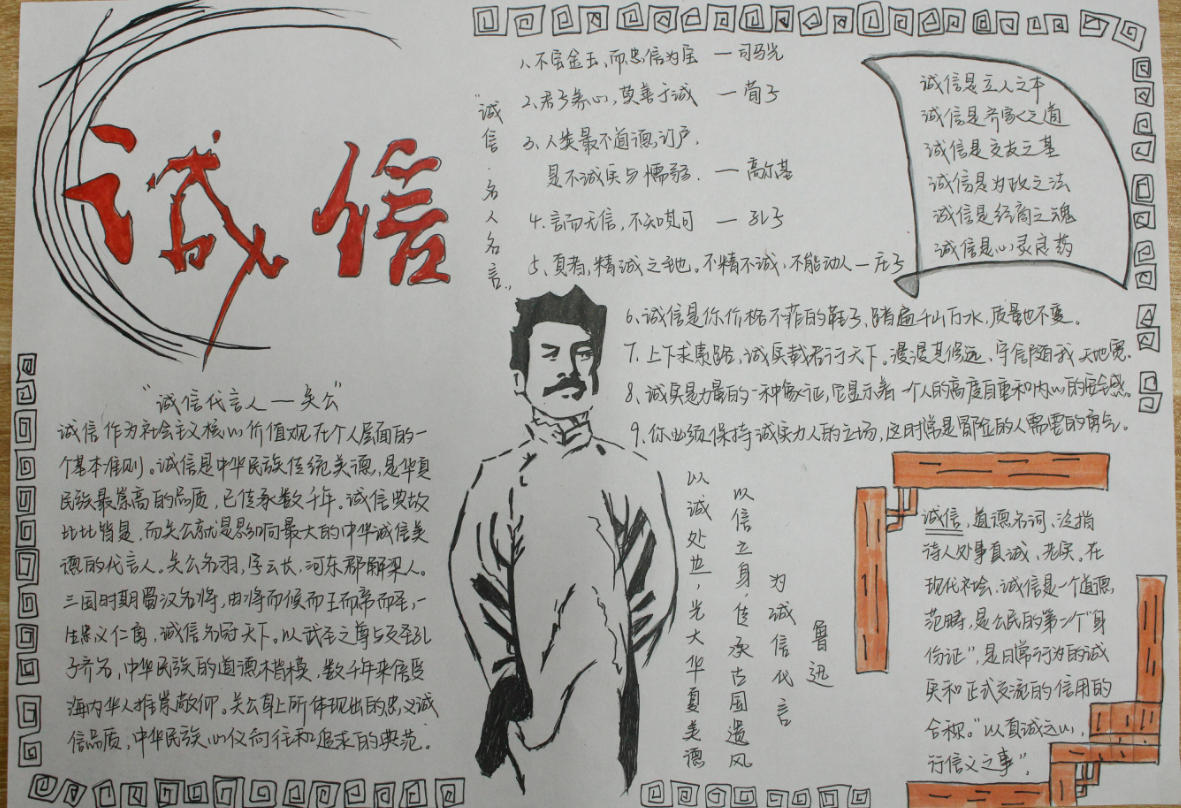 诚信
"诚信·名人名言"
1、不宝金玉,而忠信为宝 — 司马光
2、君子养心,莫善于诚 — 荀子
3、人类最不道德订户,
是不诚实与懦弱. — 高尔基
4、言而无信,不知其可 — 孔子
5、真者,精诚之至也。不精不诚,不能动人 — 庄子
6、诚信是你价格不菲的鞋子,踏遍千山万水,质量也不变。
7、上下求索路,诚实载君行天下。漫漫其修远,守信随我天地宽.
8、诚实是力量的一种象征,它显示着一个人的高度自重和内心的安全感。
9、你必须保持诚实力人的立场,这时常是冒险的人需要的勇气。
诚信是立人之本
诚信是齐家之道
诚信是交友之基
诚信是为政之法
诚信是经商之魂
诚信是心灵良药
"诚信代言人 — 关公"
诚信作为社会主义核心价值观在个人层面的一
个基本准则。诚信是中华民族传统美德,是华夏
民族最崇高的品质,已传承数千年。诚信典故
比比皆是,而关公就是影响最大的中华诚信美
德的代言人。关公名羽,字云长,河东郡解梁人。
三国时期蜀汉名将,由将而侯而王而帝而圣,一
生忠义仁勇,诚信名冠天下。以武圣之尊与文圣孔
子齐名,中华民族的道德楷模,数千年来倍受
海内华人推崇敬仰。关公身上所体现出的忠义诚
信品质,中华民族心仪向往和追求的典范。
以诚处世,光大华夏美德
以信立身,传承古国遗风
为诚信代言
鲁迅
诚信,道德名词、泛指
待人处事真诚、老实。在
现代社会、诚信是一个道德
范畴,是公民的第二个"身
份证",是日常行为的诚
实和正式交流的信用的
合称。"以真诚之心,
行信义之事",